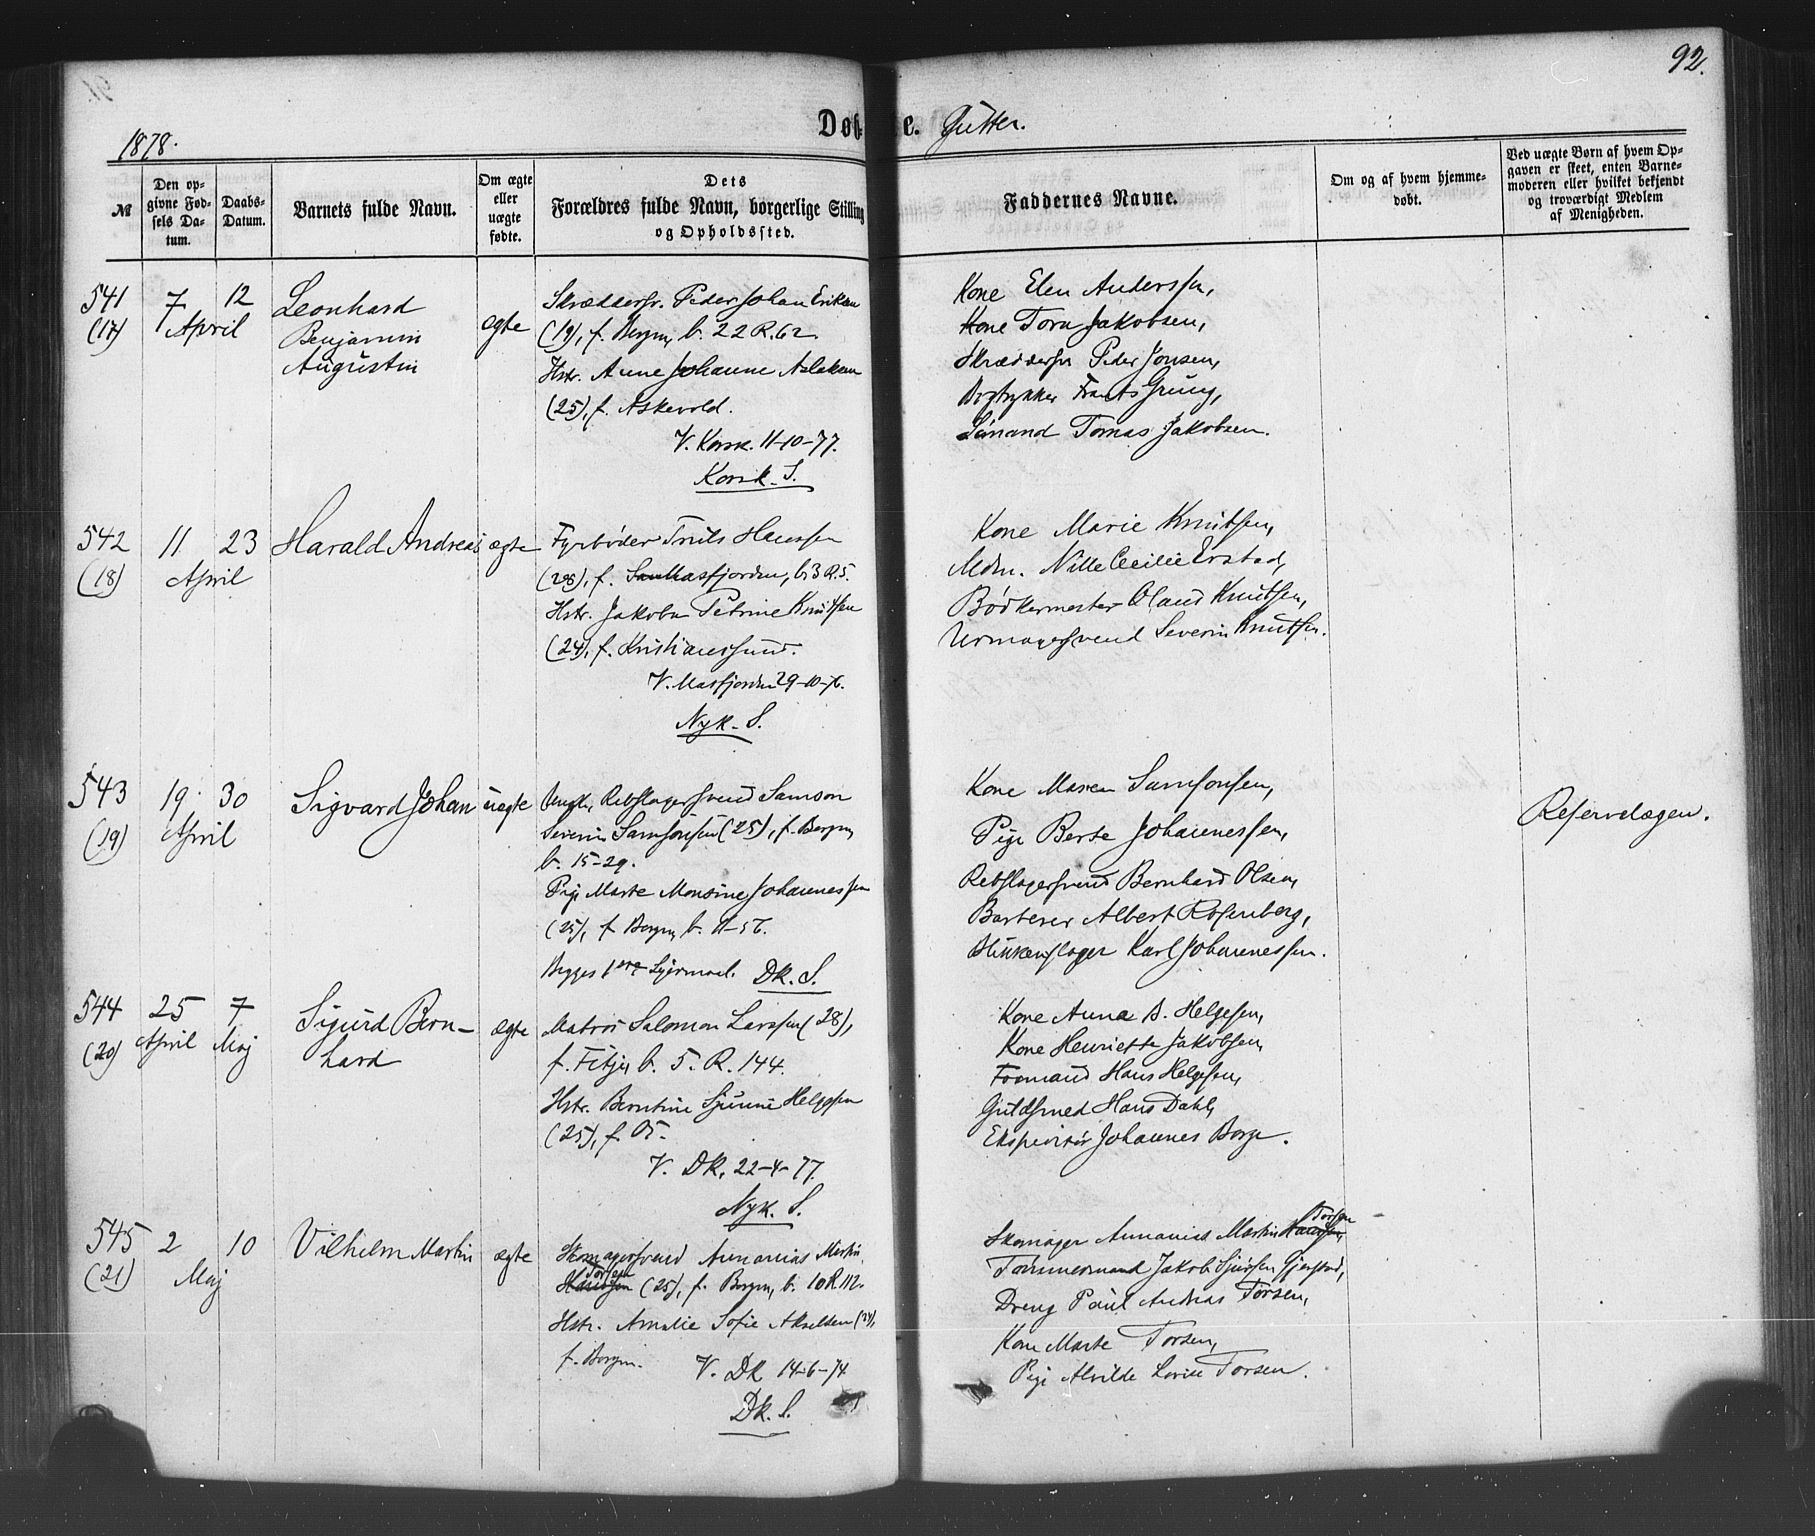 92.
1878.
Døbte. Gutter.
№
Den opgivne Fødsels Datum.
Daabs-Datum.
Barnets fulde Navn.
Om ægte eller uægte fødte.
Dets Forældres fulde Navn, borgerlige Stilling og Opholdssted.
Faddernes Navne.
Om og af hvem hjemmedøbt.
Ved uægte Børn af hvem Opgaven er skeet, enten Barnemoderen eller hvilket bekjendt og troværdigt Medlem af Menigheden.
541 (17)
7 12 April
Leonhard
Benjamin
Augustin
ægte
Skræddersv. Peder Johan Eriksen
(19), f. Bergen, b. 22 R. 62.
Hstr. Anne Johanne Aslaksen
(25), f. Askevold.
V. Korsk. 11-10-77.
Korsk. S.
Kone Elen Anderssen,
Kone Tora Jakobsen,
Skræddersv Peder Jonsen,
Bogtrykker Frants Grung,
Sömand Tomas Jakobsen.
542 (18)
11 23 April
Harald Andreas
ægte
Fyrböder Truls Hanssen
(28), f. Masfjorden, b. 3 R. 5.
Hstr. Jakoba Petrine Knutsen
(24), f. Kristianssund.
V. Masfjorden 29-10-76.
Nyk. S.
Kone Marie Knutsen,
Mdm. Nille Cecilie Erstad,
Bödkermester Olaus Knutsen,
Urmagersvend Severin Knutsen.
543 (19)
19 30 April
Sigvard Johan
uægte
Ungk. Rebslagersvend Samson
Severin Samsonsen (25), f. Bergen,
b. 15-29.
Pige Marte Monsine Johannessen
(25), f. Bergen, b. 11-56.
Begges 1ste Leiermaal. Dk. S.
Kone Maren Samsonsen,
Pige Berte Johannessen,
Rebslagersvend Bernhard Olsen,
Barberer Albert Rosenberg,
Blikkenslager Karl Johannessen.
Reservelægen.
544 (20)
25 April
7 Maj
Sigurd Bern-
hard
ægte
Matros Salomon Larssen (28),
f. Fitje, b. 5. R. 144.
Hstr. Berntine Helgesen
(25), f. Os.
V. Dk. 22-4-77.
Nyk. S.
Kone Anna B. Helgesen,
Kone Henriette Jakobsen,
Formand Hans Helgesen,
Guldsmed Hans Dahl,
Ekspeditör Johannes Borge.
545 (21)
2 10 Maj
Vilhelm Martin
ægte
Skomagersvend Annanias Martin
Torsen (25), f. Bergen, b. 10 R 112.
Hstr. Amalie Sofie Akselsen (24),
f. Bergen.
V. Dk 14-6-74
Dk. S.
Skomager Annanias Martin Torsen
Tömmermand Jakob Sjursen Gjerstad,
Dreng Paul Andreas Torsen,
Kone Marte Torsen,
Pige Alvilde Lovise Torsen.